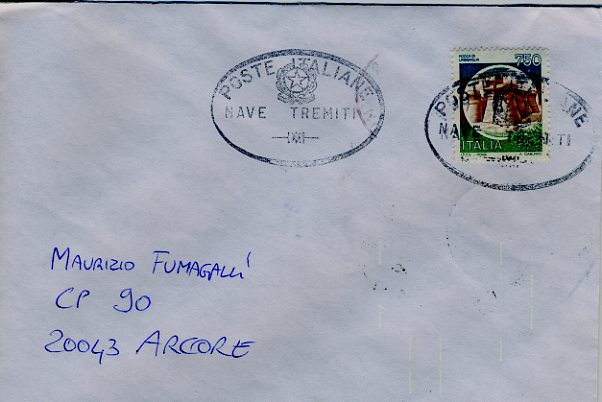 POSTE ITALIANE
NAVE TREMITI
750
ITALIA
POSTE ITALIANE
NAVE TREMITI
MAURIZIO FUMAGALLI
CP 90
20043 ARCORE